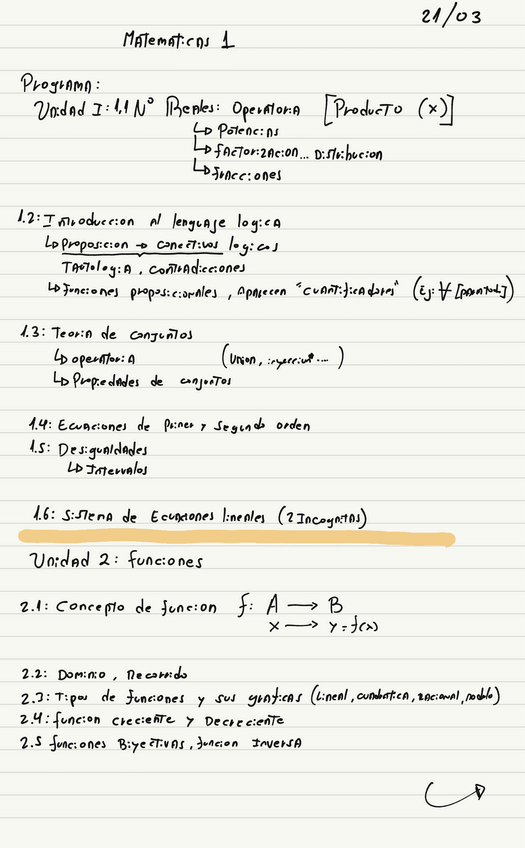 21/03
Matematicas 1
Programa:
Unidad I: 1.1 N° Reales: Operatoria [Producto (x)]
↳ Potencias
↳ factorizacion... Distribucion
↳ fracciones
1.2: Introduccion al lenguaje logica
↳ proposicion → conectivos logicos
Tautologia, contradicciones
↳ funciones proposicionales, aparecen "cuantificadores" (Ej: ∀ [para tod.])
1.3: Teoria de conjuntos
↳ operatoria (Union, ....)
↳ Propiedades de conjuntos
1.4: Ecuaciones de Primer y segundo orden
1.5: Desigualdades
↳ Intervalos
1.6: Sistema de Ecuaciones lineales (2 Incognitas)
Unidad 2: funciones
2.1: Concepto de funcion f: A → B
x → y = f(x)
2.2: Dominio, Recorrido
2.3: Tipos de funciones y sus graficas (lineal, cuadratica, racional, modulo)
2.4: funcion creciente y Decreciente
2.5 funciones Biyectivas, funcion Inversa